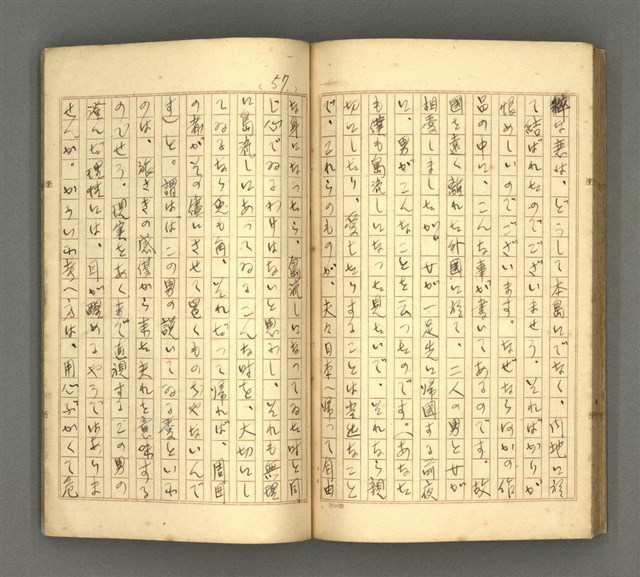 粋な恋は、どうして本島にでなく、内地に於
て結ばれたのでございませう。それはかりが
恨めしいのでございます。なぜならばかの作
品の中に、こんな事が書いてあるのです。故
国を遠く離れた外国に於て、二人の男と女が
相愛しましたが、女が一足先に帰国する前夜
に、男がこんなことを云つたのです。（あなた
も僕も島流しになつた見たいで、それなら親
切にしたり、愛したりすることは当然なこと
で、これらのものが、夫々日本へ帰つて自由
な身になつたら、島流しになつてゐた時と同
じ心でゐるわけはないと思ふし、それも無理
に島流しにあつてゐるこんな時を、大切にし
てゐるなら兎も角、それなつて帰れば、周囲
の者がその儘にさせて置くものぢやないんで
す）と。謂はばこの男の説いてゐる愛といふ
のは、旅さきの感傷から来た夫れを意味する
のでせう。現実をあくまで直視するこの男の
澄んだ理性には、目が醒めるやうではありま
せんか。かういふ考へ方は、用心ぶかくて危
57